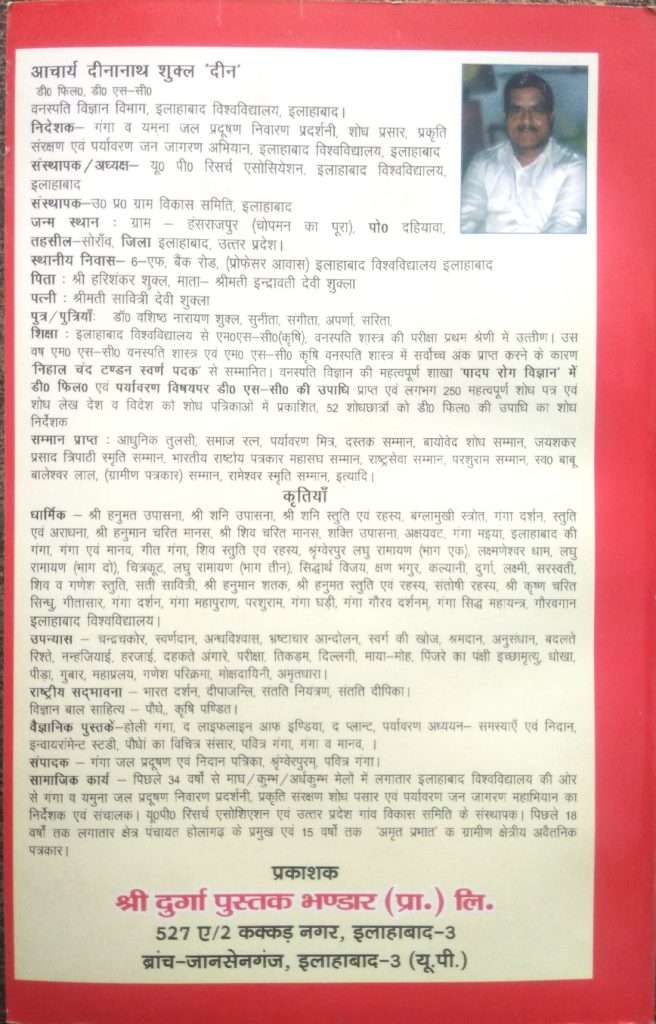 आचार्य दीनानाथ शुक्ल 'दीन'
डी0 फिल0, डी0 एस-सी0
वनस्पति विज्ञान विभाग, इलाहाबाद विश्वविद्यालय, इलाहाबाद।
निदेशक- गंगा व यमना जल प्रदूषण निवारण प्रदर्शनी, शोध प्रसार, प्रकृति
संरक्षण एवं पर्यावरण जन जागरण अभियान, इलाहाबाद विश्वविद्यालय, इलाहाबाद
संस्थापक/अध्यक्ष- यू0 पी0 रिसर्च एसोसियेशन, इलाहाबाद विश्वविद्यालय,
इलाहाबाद
संस्थापक-उ0 प्र0 ग्राम विकास समिति, इलाहाबाद
जन्म स्थान : ग्राम - हंसराजपुर (चोपमन का पूरा), पो0 दहियावा,
तहसील-सोराँव, जिला इलाहाबाद, उत्तर प्रदेश।
स्थानीय निवास- 6-एफ, बैंक रोड, (प्रोफेसर आवास) इलाहाबाद विश्वविद्यालय इलाहाबाद
पिता : श्री हरिशंकर शुक्ल, माता- श्रीमती इन्द्रावती देवी शुक्ला
पत्नी : श्रीमती सावित्री देवी शुक्ला
पुत्र/पुत्रियाँ: डॉ0 वशिष्ठ नारायण शुक्ल, सुनीता, संगीता, अपर्णा, सरिता,
शिक्षा : इलाहाबाद विश्वविद्यालय से एम0एस-सी0(कृषि), वनस्पति शास्त्र की परीक्षा प्रथम श्रेणी में उत्तीण। उस
वष एम0 एस-सी0 वनस्पति शास्त्र एवं एम0 एस-सी0 कृषि वनस्पति शास्त्र में सर्वोच्च अंक प्राप्त करने के कारण
'निहाल चंद टण्डन स्वर्ण पदक' से सम्मानित। वनस्पति विज्ञान की महत्वपूर्ण शाखा 'पादप रोग विज्ञान' में
डी0 फिल0 एवं पर्यावरण विषयपर डी0 एस-सी0 की उपाधि प्राप्त एवं लगभग 250 महत्वपूर्ण शोध पत्र एवं
शोध लेख देश व विदेश को शोध पत्रिकाओं में प्रकाशित, 52 शोधछात्रों को डी0 फिल0 की उपाधि का शोध
निर्देशक
सम्मान प्राप्त : आधुनिक तुलसी, समाज रत्न, पर्यावरण मित्र, दस्तक सम्मान, बायोवेद शोध सम्मान, जयशकर
प्रसाद त्रिपाठी स्मृति सम्मान, भारतीय राष्टोय पत्रकार महासघ सम्मान, राष्ट्रसेवा सम्मान, परशुराम सम्मान, स्व0 बाबू
बालेश्वर लाल, (ग्रामीण पत्रकार) सम्मान, रामेश्वर स्मृति सम्मान, इत्यादि।
कृतियाँ
धार्मिक - श्री हनुमत उपासना, श्री शनि उपासना, श्री शनि स्तुति एवं रहस्य, बग्लामुखी स्त्रोत, गंगा दर्शन, स्तुति
एवं अराधना, श्री हनुमान चरित मानस, श्री शिव चरित मानस, शक्ति उपासना, अक्षयवट, गंगा मइया, इलाहाबाद की
गंगा, गंगा एवं मानव, गीत गंगा, शिव स्तुति एवं रहस्य, श्रृंग्वेरपुर लघु रामायण (भाग एक), लक्ष्मणेश्वर धाम, लघु
रामायण (भाग दो), चित्रकूट, लघु रामायण (भाग तीन), सिद्धार्थ विजय, क्षण भगुर, कल्यानी, दुर्गा, लक्ष्मी, सरस्वती,
शिव व गणेश स्तुति, सती सावित्री, श्री हनुमान शतक, श्री हनुमत स्तुति एवं रहस्य, संतोषी रहस्य, श्री कृष्ण चरित
सिन्धु, गीतासार, गंगा दर्शन, गंगा महापुराण, परशुराम, गंगा घड़ी, गंगा गौरव दर्शनम्, गंगा सिद्ध महायन्त्र, गौरवगान
इलाहाबाद विश्वविद्यालय।
उपन्यास - चन्द्रचकोर, स्वर्णदान, अन्धविश्वास, भ्रष्टाचार आन्दोलन, स्वर्ग की खोज, श्रमदान, अनुसंधान, बदलते
रिश्ते, नन्हजियाई, हरजाई, दहकते अंगारे, परीक्षा, तिकड़म, दिल्लगी, माया-मोह, पिंजरे का पंक्षी इच्छामृत्यु, धोखा,
पीड़ा, गुबार, महाप्रलय, गणेश परिक्रमा, मोक्षदायिनी, अमृतधारा।
राष्ट्रीय सद्‌भावना - भारत दर्शन, दीपाजन्लि, संतति नियत्रण, संतति दीपिका।
विज्ञान बाल साहित्य - पौधे,, कृषि पण्डित।
वैज्ञानिक पुस्तकें-होली गंगा, द लाइफलाइन आफ इण्डिया, द प्लान्ट, पर्यावरण अध्ययन- समस्याएँ एवं निदान,
इन्वायरांमेन्ट स्टडी, पौधेां का विचित्र संसार, पवित्र गंगा, गंगा व मानव, ।
संपादक - गंगा जल प्रदूषण एवं निदान पत्रिका, श्रृंग्वेरपुरम्, पवित्र गंगा।
सामाजिक कार्य - पिछले 34 वर्षो से माघ/कुम्भ/अर्धकुम्भ मेलों में लगातार इलाहाबाद विश्वविद्यालय की ओर
से गंगा व यमुना जल प्रदूषण निवारण प्रदर्शनी, प्रकृति संरक्षण शोध पसार एवं पर्यावरण जन जागरण महाभियान का
निर्देशक एवं संचालक। यू0पी0 रिसर्च एसोशिएशन एवं उत्तर प्रदेश गांव विकास समिति के संस्थापक। पिछले 18
वर्षों तक लगातार क्षेत्र पंचायत होलागढ़ के प्रमुख एवं 15 वर्षो तक 'अमृत प्रभात' क ग्रामीण क्षेत्रीय अवैतनिक
पत्रकार।
प्रकाशक
श्री दुर्गा पुस्तक भण्डार (प्रा.) लि.
527 ए/2 कक्कड़ नगर, इलाहाबाद-3
ब्रांच-जानसेनगंज, इलाहाबाद-3 (यू.पी.)